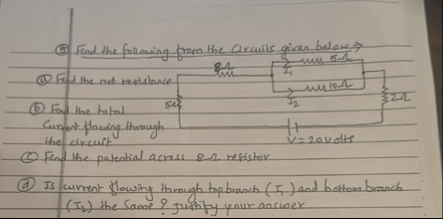 ⑤ Find the following from the Circuits given below →
8Ω I₁ 5Ω
ⓐ Find the net resistance
I₂ 10Ω
ⓑ Find the total 5Ω 2Ω
Current flowing through
the circuit V = 20 volts
ⓒ Find the potential across 8Ω resistor
ⓓ Is current flowing through top branch (I₁) and bottom branch
(I₂) the same? Justify your answer